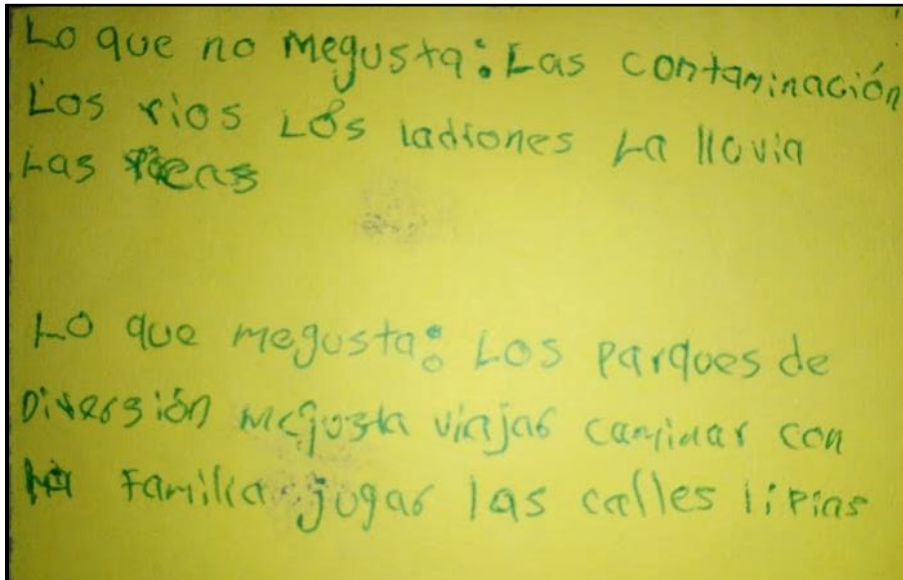 Lo que no megusta: Las contaminación
Los rios Los ladrones La lluvia
Las
Lo que megusta: Los parques de
Diversión megusta viajar caminar con
familia jugar las calles lipias